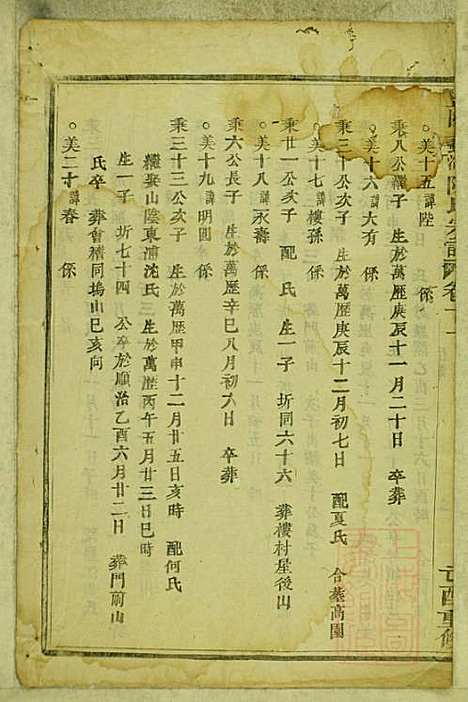 陳氏宗譜 卷十一
○美十五 諱陸 係
秉八公繼子 生於萬歷庚辰十一月二十日 卒葬
○美十六 諱大有 係
秉三十公次子 生於萬歷庚辰十二月初七日 配夏氏 合墓高園
○美十七 諱樓孫 係
秉廿一公次子 配 氏 生一子 圻同六十六 葬樓村星後山
○美十八 諱永壽 係
秉六公長子 生於萬歷辛巳八月初六日 卒葬
○美十九 諱明圓 係
秉三十三公次子 生於萬歷甲申十二月廿五日亥時 配何氏
繼娶山陰東浦沈氏三 生於萬歷丙午五月廿三日巳時
生一子 圻七十四 公卒於順治乙酉六月廿二日 葬門前山
氏卒 葬會稽同塢山巳亥向
○美二十 諱春 係
酉重修